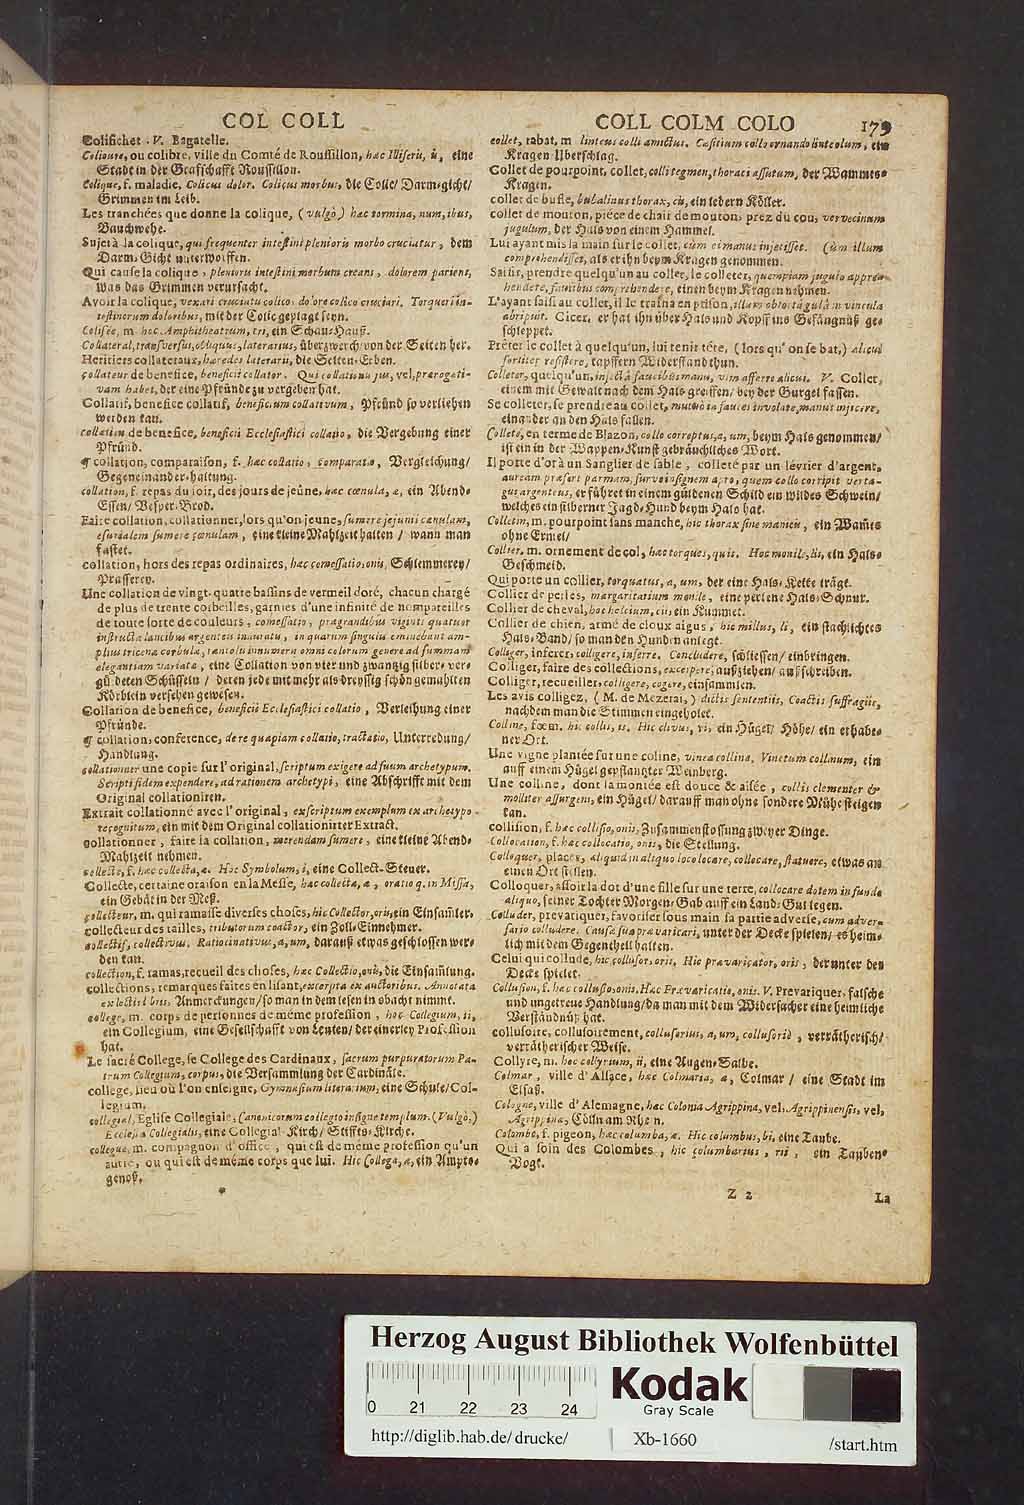 COL COLL
Colifichet. V. Bagatelle.
Colioure, ou colibre, ville du Comté de Roussillon, hæc Illiseris, is, eine
Stadt in der Grafschafft Roussillon.
Colique, f. maladie, Colicus dolor. Colicus morbus, die Colic/ Darmgicht/
Grimmen im Leib.
Les tranchées que donne la colique, (vulgò) hæc tormina, num, ibus,
Bauchwehe.
Sujet à la colique, qui frequenter intestini plenioris morbo cruciatur, dem
Darm-Gicht unterworffen.
Qui cause la colique, plenioris intestini morbum creans, dolorem parient,
was das Grimmen verursacht.
Avoir la colique, vexari cruciatu colico: dolore colico cruciari. Torqueri in-
testinorum doloribus, mit der Colic geplagt seyn.
Colisée, m. hoc Amphitheatrum, tri, ein Schau-Hauß.
Collateral, transversus, obliquus, laterarius, überzwerch/ von der Seiten her.
Heritiers collateraux, hæredes laterarii, die Seiten-Erben.
collateur de benefice, beneficii collator. Qui collationis jus, vel, prærogati-
vam habet, der eine Pfründ zu vergeben hat.
Collatif, benefice collatif, beneficium collativum, Pfründ so verliehen
werden kan.
collation de benefice, beneficii Ecclesiastici collatio, die Vergebung einer
Pfründ.
¶ collation, comparaison, f. hæc collatio, comparatio, Vergleichung/
Gegeneinander-haltung.
collation, f. repas du soir, des jours de jeûne, hæc cœnula, æ, ein Abend-
Essen/ Vesper-Brod.
Faire collation, collationner, lors qu'on jeune, sumere jejunii cœnulam,
esurialem sumere cœnulam, eine kleine Mahlzeit halten/ wann man
fastet.
collation, hors des repas ordinaires, hæc comessatio, onis, Schlemmerey/
Prasserey.
Une collation de vingt-quatre bassins de vermeil doré, chacun chargé
de plus de trente corbeilles, garnies d'une infinité de nompareilles
de toute sorte de couleurs, comessatio, prægrandibus viginti quatuor
instructa lancibus argenteis inauratis, in quarum singulis eminebant am-
plius tricena corbula, tantolis innumeris omni colorum genere ad summam
elegantiam variata, eine Collation von vier und zwanzig silber-ver-
güldeten Schüsseln/ deren jede mit mehr als dreyssig schön gemahlten
Körblein versehen gewesen.
Collation de benefice, beneficii Ecclesiastici collatio, Verleihung einer
Pfründe.
¶ collation, conference, de re quapiam collatio, tractatio, Unterredung/
Handlung.
collationner une copie sur l'original, scriptum exigere ad suum archetypum.
Scripti fidem expendere, ad rationem archetypi, eine Abschrifft mit dem
Original collationiren.
Extrait collationné avec l'original, exscriptum exemplum ex archetypo
recognitum, ein mit dem Original collationirter Extract.
collationner, faire la collation, merendam sumere, eine kleine Abend-
Mahlzeit nehmen.
collecte, f. hæc collecta, æ. Hoc Symbolum, i, eine Collect-Steuer.
Collecte, certaine oraison en la Messe, hæc collecta, æ, oratio q. in Missa,
ein Gebät in der Meß.
collecteur, m. qui ramasse diverses choses, hic Collector, oris, ein Einsamler.
collecteur des tailles, tributorum coactor, ein Zoll-Einnehmer.
collectif, collectivus. Ratiocinativus, a, um, darauß etwas geschlossen wer-
den kan.
collection, f. ramas, recueil des choses, hæc Collectio, onis, die Einsamlung.
collections, remarques faites en lisant, excerpta ex auctoribus. Annotata
ex lectis libris, Anmerckungen/ so man in dem lesen in obacht nimmt.
college, m. corps de personnes de même profession, hoc Collegium, ii,
ein Collegium, eine Gesellschafft von Leuten/ der einerley Profession
hat.
Le sacré College, le College des Cardinaux, sacrum purpuratorum Pa-
trum Collegium, corpus, die Versammlung der Cardinäle.
college, lieu où l'on enseigne, Gymnasium literarium, eine Schule/ Col-
legium.
collegial, Eglise Collegiale, Canonicorum collegio insigne templum. (Vulgò,)
Ecclesia Collegialis, eine Collegial-Kirch/ Stiffts-Kirche.
collegue, m. compagnon d'office, qui est de même profession qu'un
autre, ou qui est de même corps que lui. Hic Collega, æ, ein Ampts-
genoß.
*
COLL COLM COLO
179
collet, rabat, m. linteus colli amictus. Cæsitium collo ornando linteolum, ein
Kragen Uberschlag.
Collet de pourpoint, collet, colli tegmen, thoraci assutum, der Wammes-
Kragen.
collet de bufle, bubalinus thorax, cis, ein ledern Köller.
collet de mouton, piéce de chair de mouton, prez du cou, vervecinum
jugulum, der Hals von einem Hammel.
Lui ayant mis la main sur le collet, cùm ei manus injecisset. Cùm illum
comprehendisset, als er ihn beym Kragen genommen.
Saisir, prendre quelqu'un au collet, le colleter, quempiam jugulo appre-
hendere, faucibus comprehendere, einen beym Kragen nehmen.
L'ayant saisi au collet, il le traîna en prison, illum obtortâ gulâ in vincula
abripuit. Cicer. er hat ihn über Hals und Kopff ins Gefängnüß ge-
schleppet.
Prêter le collet à quelqu'un, lui tenir tête, (lors qu'on se bat,) alicui
fortiter resistere, tapffern Widerstand thun.
Colleter, quelqu'un, injectâ faucibus manu, vim afferre alicui. V. Collet,
einem mit Gewalt nach dem Hals greiffen/ bey der Gurgel fassen.
Se colleter, se prendre au collet, mutuò in fauces involare, manus injicere,
einander an den Hals fallen.
Colleté, en terme de Blazon, collo correptus, a, um, beym Hals genommen/
ist ein in der Wappen-Kunst gebräuchliches Wort.
Il porte d'or à un Sanglier de sable, colleté par un lévrier d'argent,
auream præfert parmam, furvo insignem apro, quem collo corripit verta-
gus argenteus, er führet in einem güldenen Schild ein wildes Schwein/
welches ein silberner Jagd-Hund beym Hals hat.
Colletin, m. pourpoint sans manche, hic thorax sine manicis, ein Wam̃es
ohne Ermel/
Collier, m. ornement de col, hæc torques, quis. Hoc monile, lis, ein Hals-
Geschmeid.
Qui porte un collier, torquatus, a, um, der eine Hals-Kette trägt.
Collier de perles, margaritarium monile, eine perlene Hals-Schnur.
Collier de cheval, hoc helcium, cii, ein Kummet.
Collier de chien, armé de cloux aigus, hic millus, li, ein stachlichtes
Hals-Band/ so man den Hunden anlegt.
Colliger, inferer, colligere, inferre. Concludere, schliessen/ einbringen.
Colliger, faire des collections, excerpere, außziehen/ außschreiben.
Colliger, recueiller, colligere, cogere, einsammlen.
Les avis colligez, (M. de Mezerai,) dictis sententiis, Coactis suffragiis,
nachdem man die Stimmen eingeholet.
Colline, fœm. hic collis, is. Hic clivus, vi, ein Hügel/ Höhe/ ein erhabe-
ner Ort.
Une vigne plantée sur une coline, vinea collina, Vinetum collinum, ein
auff einem Hügel gepflanzter Weinberg.
Une colline, dont la montée est douce & aisée, collis clementer &
molliter assurgens, ein Hügel/ darauff man ohne sondere Mühe steigen
kan.
collision, f. hæc collisio, onis, Zusammenstossung zweyer Dinge.
Collocation, f. hæc collocatio, onis, die Stellung.
Colloquer, placer, aliquid in aliquo loco locare, collocare, statuere, etwas an
einen Ort stellen.
Colloquer, assoir la dot d'une fille sur une terre, collocare dotem in fundo
aliquo, seiner Tochter Morgen-Gab auff ein Land-Gut legen.
Colluder, prevariquer, favoriser sous main sa partie adverse, cum adver-
sario colludere. Causa sua prævaricari, unter der Decke spielen/ es heim-
lich mit dem Gegentheil halten.
Celui qui collude, hic collusor, oris. Hic prævaricator, oris, der unter der
Decke spielet.
Collusion, f. hæc collusio, onis. Hæc Prævaricatio, onis. V. Prevariquer, falsche
und ungetreue Handlung/ da man mit dem Widersacher eine heimliche
Verständnüß hat.
collusoire, collusoirement, collusorius, a, um, collusoriè, verrätherisch/
verrätherischer Weise.
Collyre, m. hoc collyrium, ii, eine Augen-Salbe.
Colmar, ville d'Alsace, hæc Colmaria, æ, Colmar/ eine Stadt im
Elsaß.
Cologne, ville d'Alemagne, hæc Colonia Agrippina, vel, Agrippinensis, vel,
Agrippina, Cölln am Rhein.
Colombe, f. pigeon, hæc columba, æ. Hic columbus, bi, eine Taube.
Qui a soin des Colombes, hic columbarius, rii, ein Tauben-
Vogt.
Z 2
La
Herzog August Bibliothek Wolfenbüttel
0 21 22 23 24
Kodak
Gray Scale
http://diglib.hab.de/drucke/
Xb-1660
/start.htm